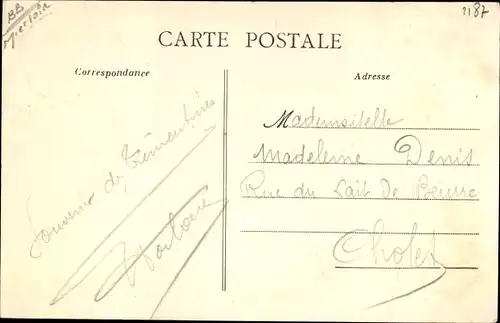 BB
1187
CARTE POSTALE
Correspondance
Adresse
Souvenir de Trémentines
Mademoiselle
Madeleine Denis
Rue du Lait De Beurre
Cholet